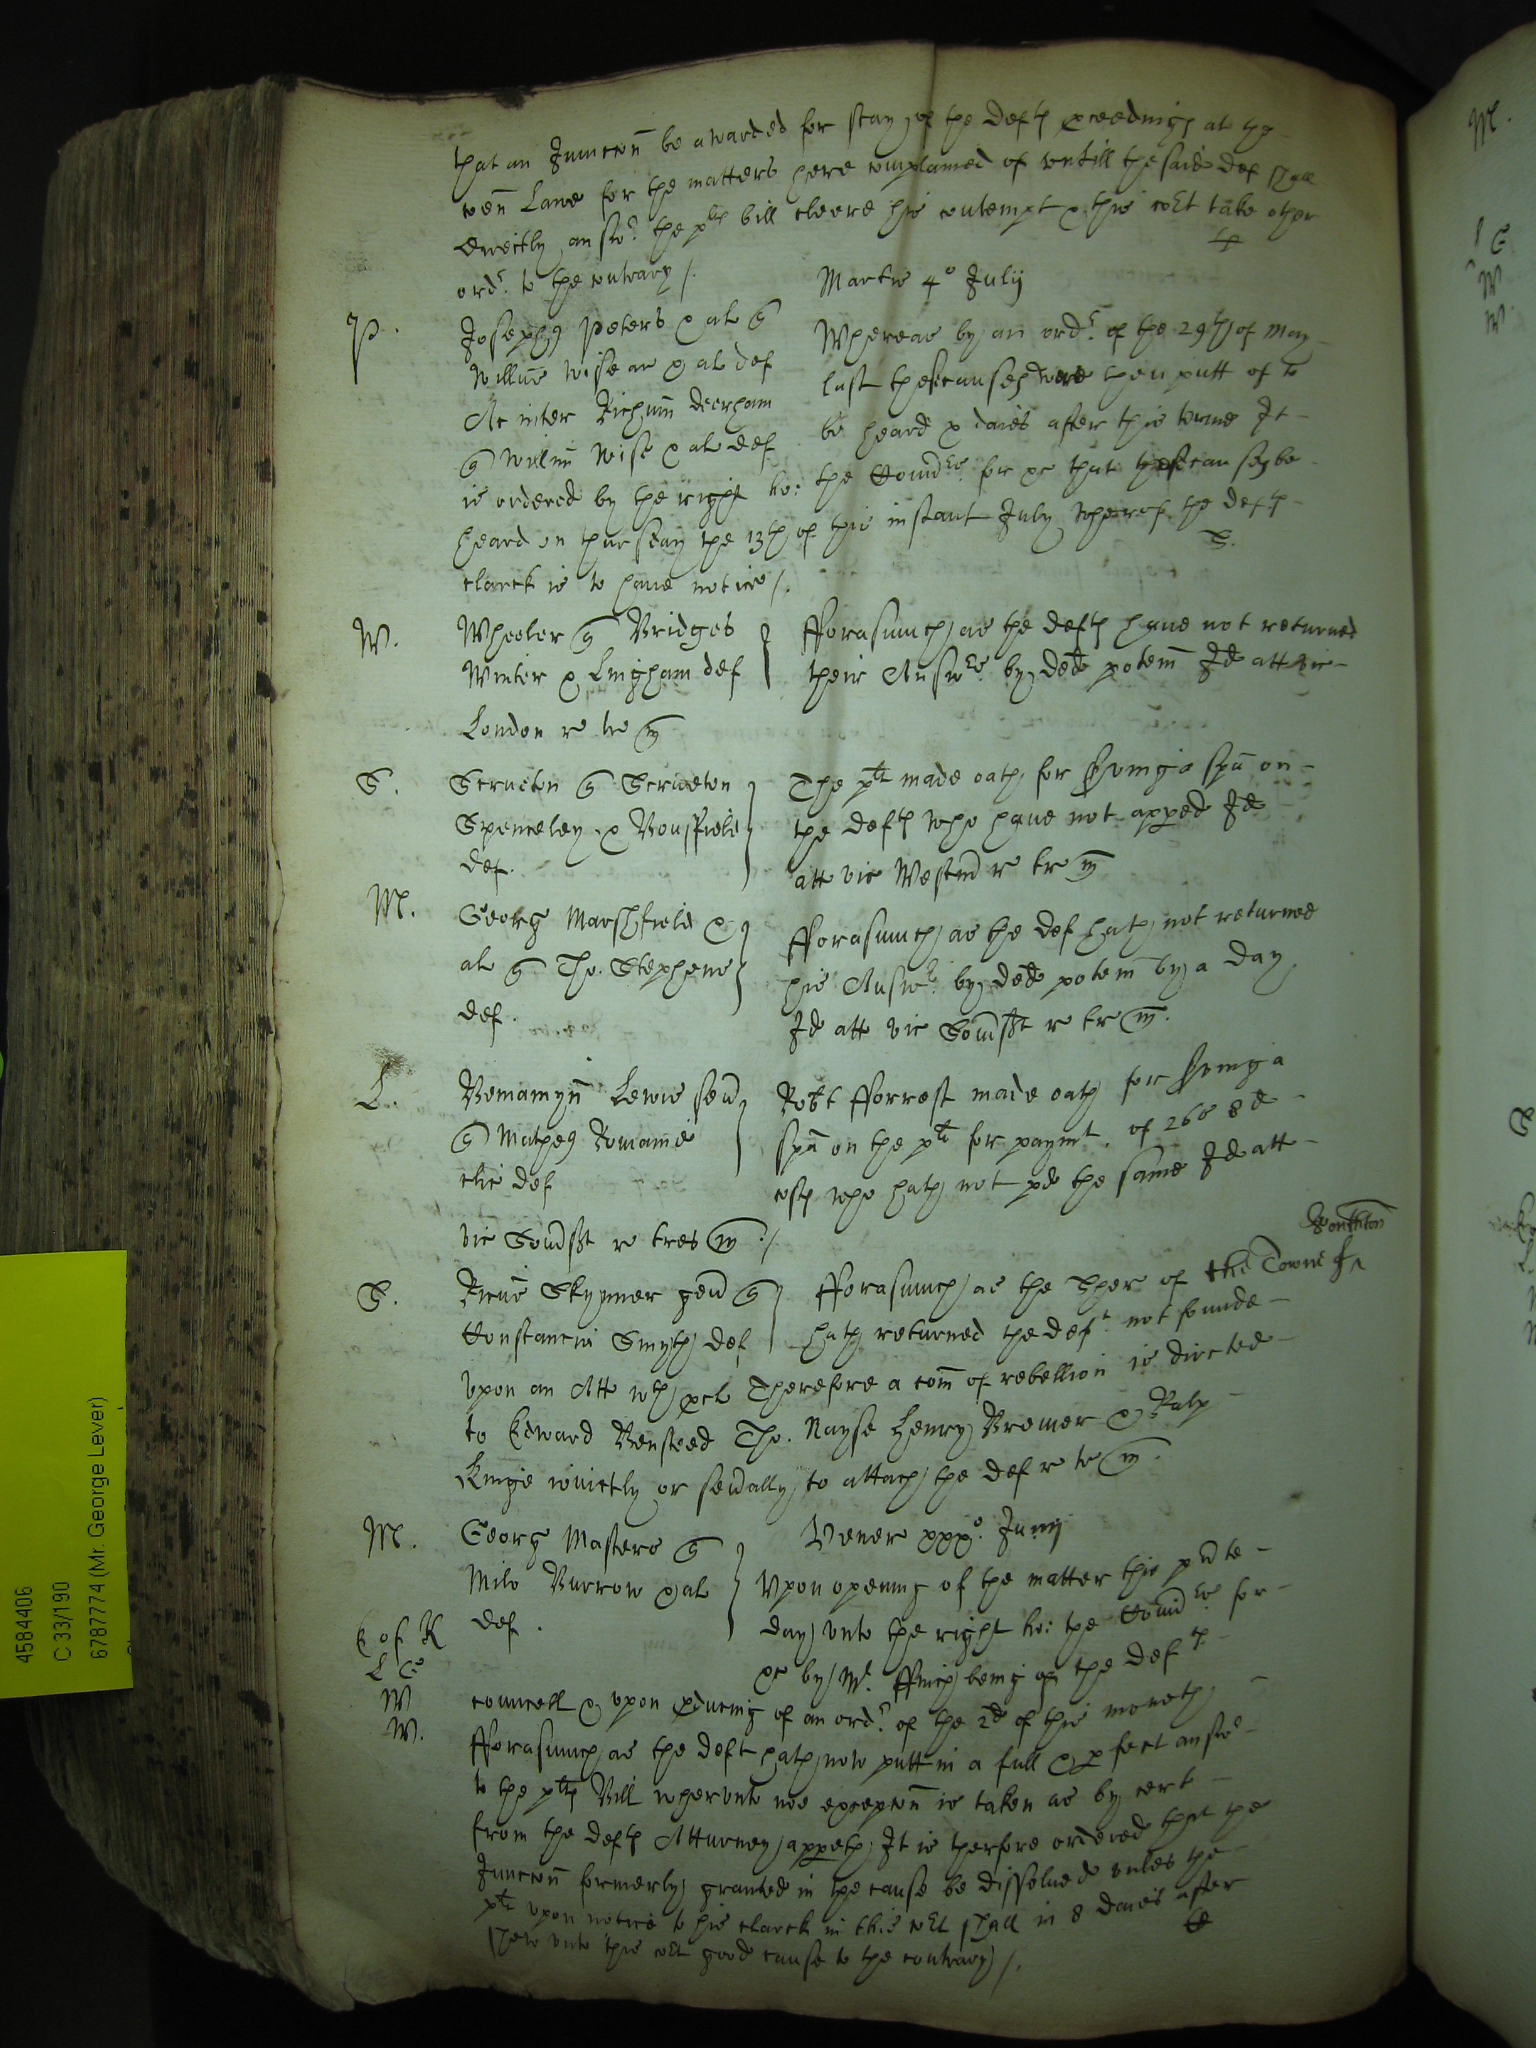 that an Iunccon be awarded for stay of the defts proceedings at the
comon Lawe for the matters here complained of untill the said def shall
directly answr the plts bill cleere his contempt & this cort take other
ordr to the contrary /.
Martis 4° July
P.
Josephus Peters & al q
Willm Wiseman & al def
Ac inter Richum Deerham
q Willm Wise & al def
Whereas by an ordr of the 29th of May
last these causes were then putt of to
be heard x daies after this terme It
is ordered by the right ho: the Comrs for &c that these causes be
heard on thursday the 13th of this instant July wherof the defts
clarck is to have notice /.
W.
Wheeler q Bridges
Winter & Lingham def
fforasmuch as the defts have not returned
their Answrs by ded potem Id att vic
London re tre m
S.
Scruton q Scruton
Spenceley & Bousfield
def.
The plt made oath for serving a spa on
the defts who have not apped Id
att vic Westmd re tre m
M.
George Marshfield &
al q Tho. Stephens
def.
fforasmuch as the def hath not returned
his Answr by ded potem by a day
Id att vic Somst re tre m.
L.
Beniamyn Lewis sen
q Matheus Romaine
clic def
Robt fforrest made oath for serving a
spa on the plt for paymt of 26s 8d
costs who hath not pd the same Id att
vic Somst re tres m /
S.
Ricus Skynner gen q
Constancia Smyth def
fforasmuch as the Sher of the Towne of
Southton
hath returned the deft not founde
upon an Att wth procl Therefore a com of rebellion is directed
to Edward Bensteed Tho. Nayse Henry Bremer & Ralph
Kinge ioinctly or severally to attach the def re tre m.
M.
George Masters q
Milo Burrow & al
def.
Vener xxx° Junij
Upon opening of the matter this pnte
day unto the right ho: the Comrs for
&c by Mr ffinch being of the defts
E of K
L G
W
W.
councell & upon pducing of an ordr of the 2d of this moneth
fforasmuch as the deft hath now putt in a full & pfect answr
to the plts Bill wherunto noe excepcon is taken as by cert
from the defts Atturney appeth It is therfore ordered that the
Iunccon formerly granted in the cause be dissolued unles the
plt upon notice to his clarck in this cort shall in 8 daies after
shew unto this cort good cause to the contrary /.
4584406
C 33/190
6787774 (Mr. George Lever)